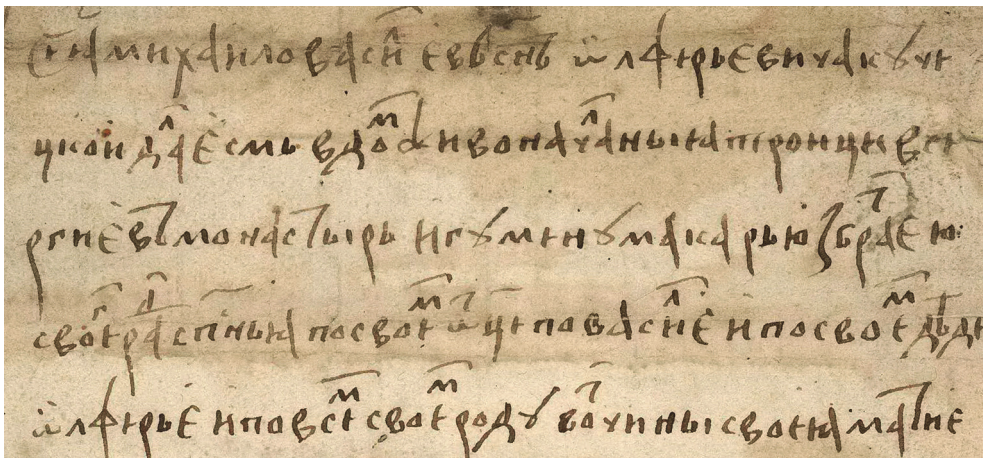 Се ꙗ михаило васильевъ снъ ѡлферьевича кꙋче
цкои дал есмь в дом живоначалныꙗ троици в се
ргиевъ монастырь игꙋменꙋ макарью з братею
своег ради спниꙗ по своем ѡтце по василие и по своем деде
ѡлферье и по всем своем родꙋ вотчины своеꙗ матне